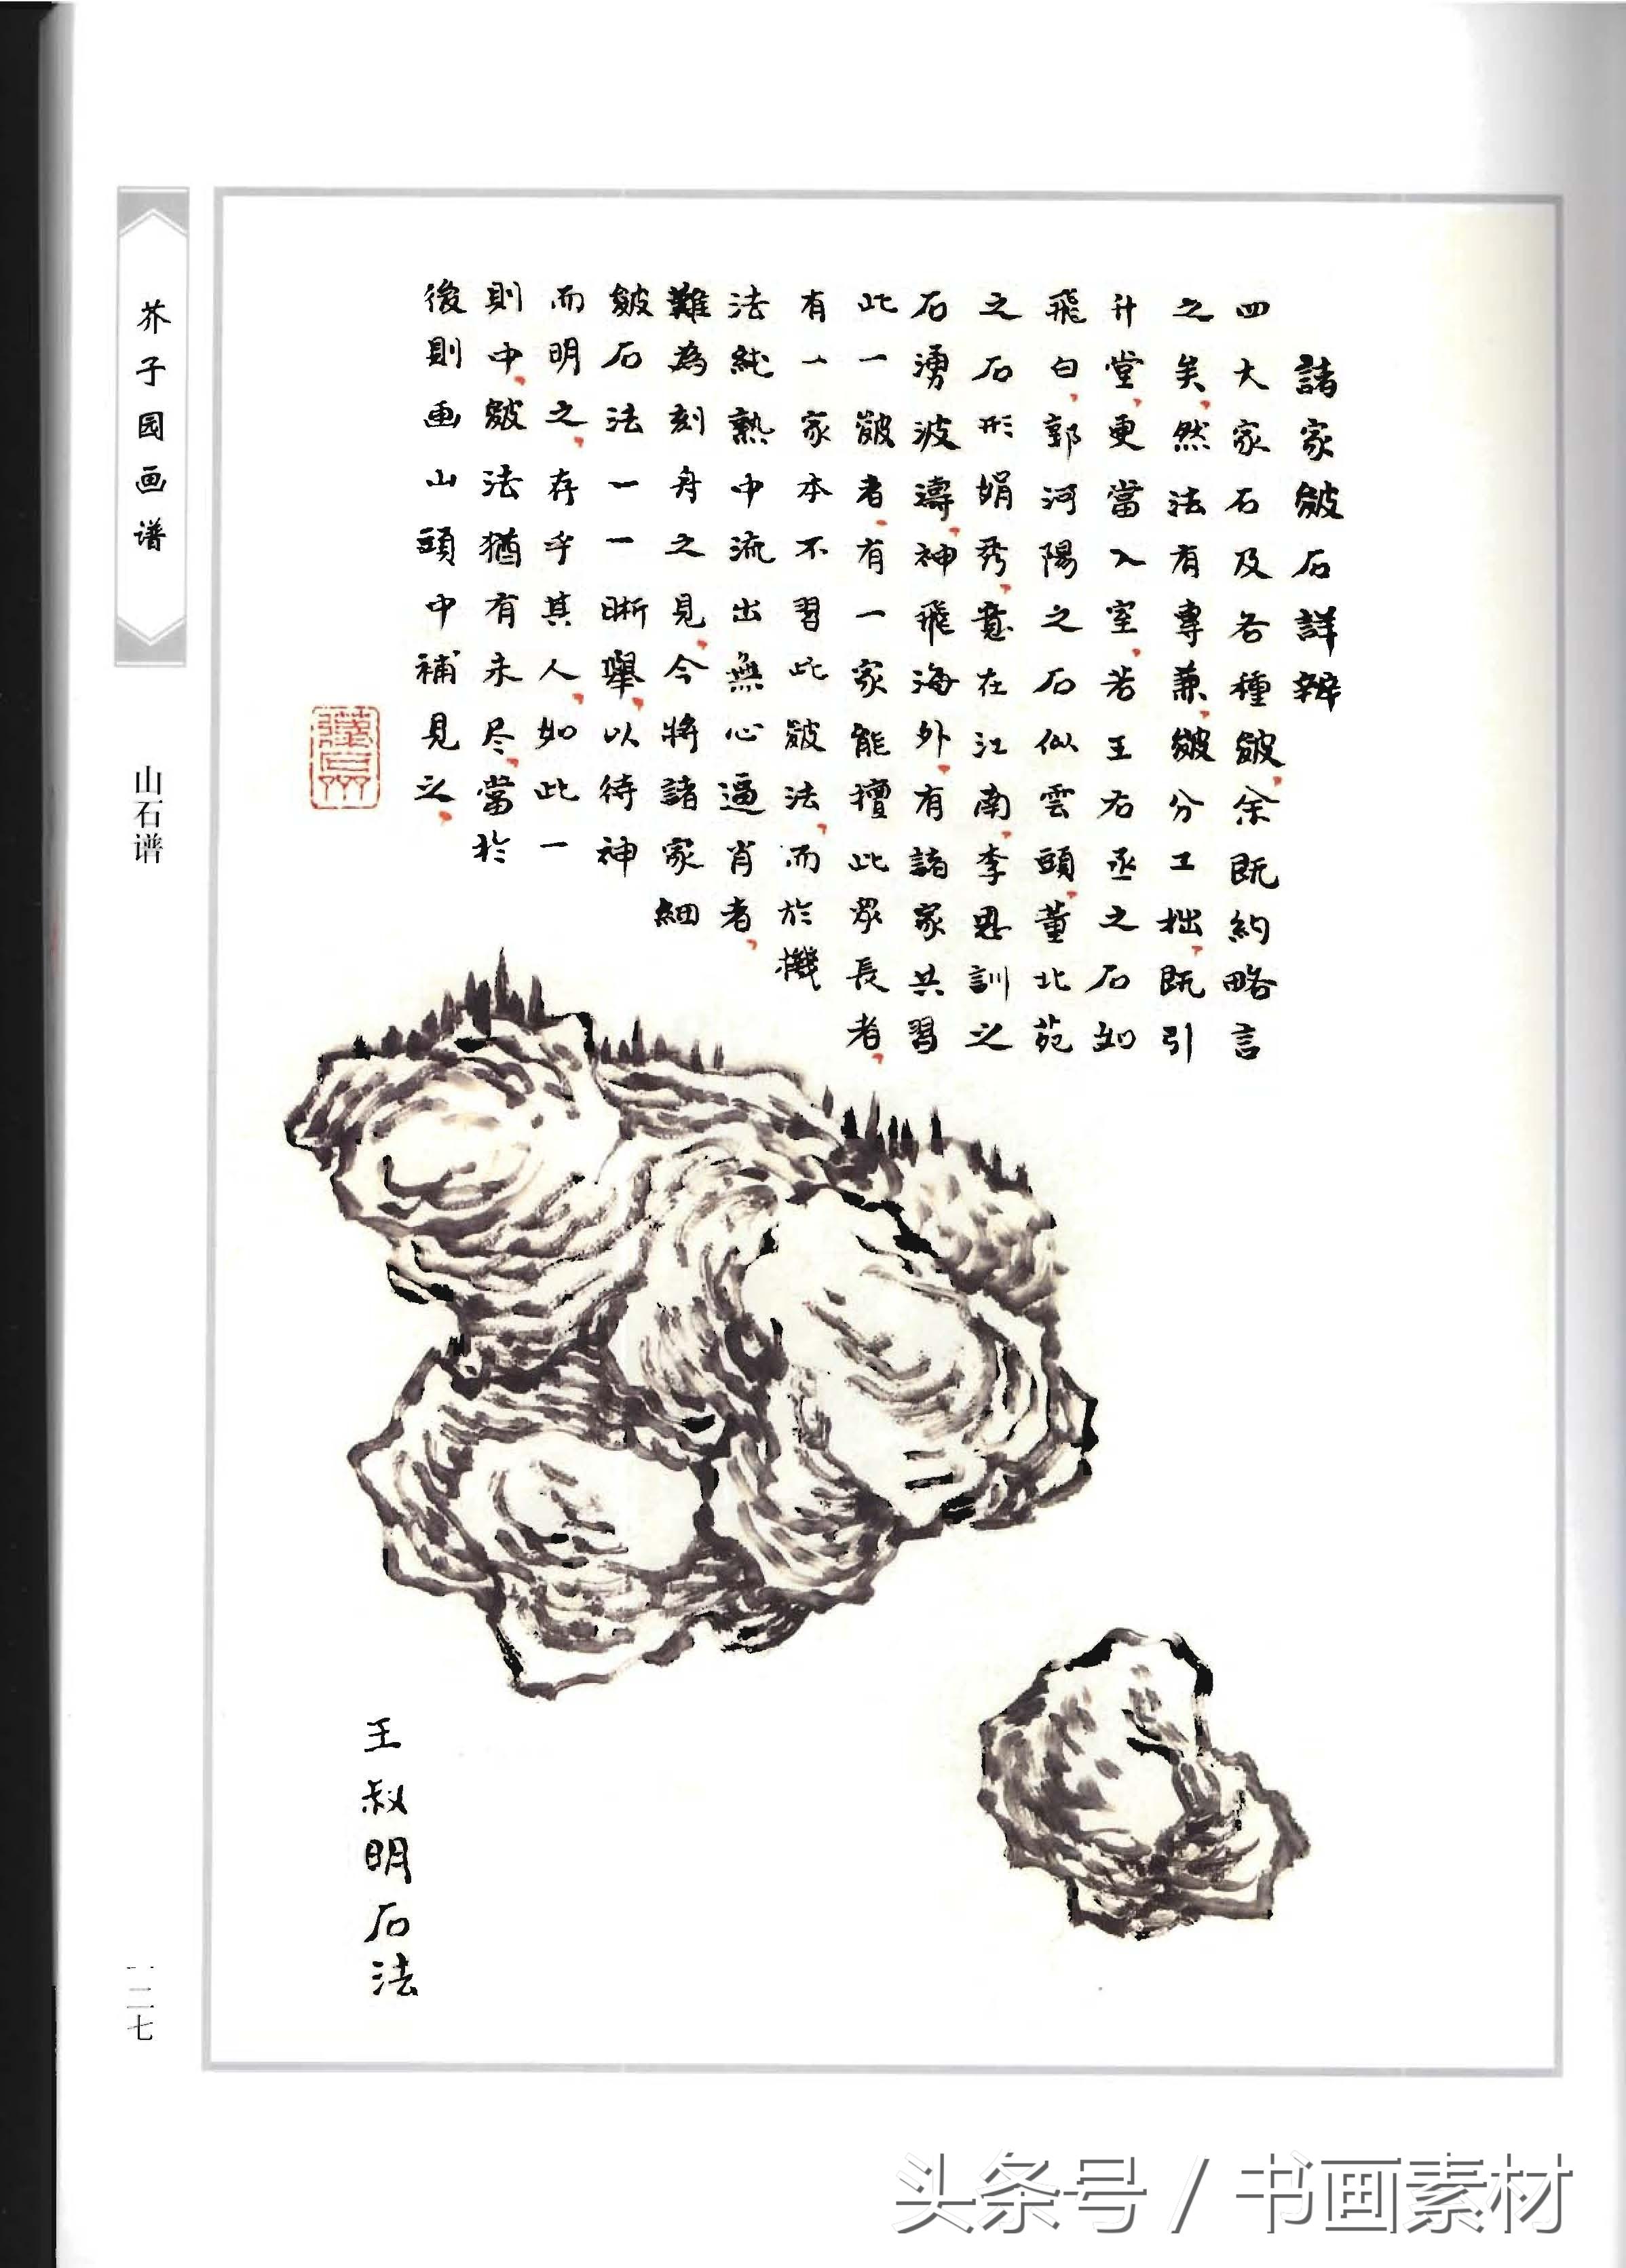 諸家皴石詳辨
四大家石及各種皴余既約略言
之矣然法有專兼皴分工拙既引
升堂更當入室若王右丞之石如
飛白郭河陽之石似雲頭董北苑
之石形娟秀意在江南李思訓之
石湧波濤神飛海外有諸家共習
此一皴者有一家能擅此眾長者
有一家本不習此皴法而於機
法純熟中流出無心逼肖者
難為刻舟之見今將諸家細
皴石法一一晰舉以待神
而明之存乎其人如此一
則中皴法猶有未尽當於
後則画山頭中補見之
王叔明石法
芥子园画谱
山石谱
一二七
头条号 / 书画素材